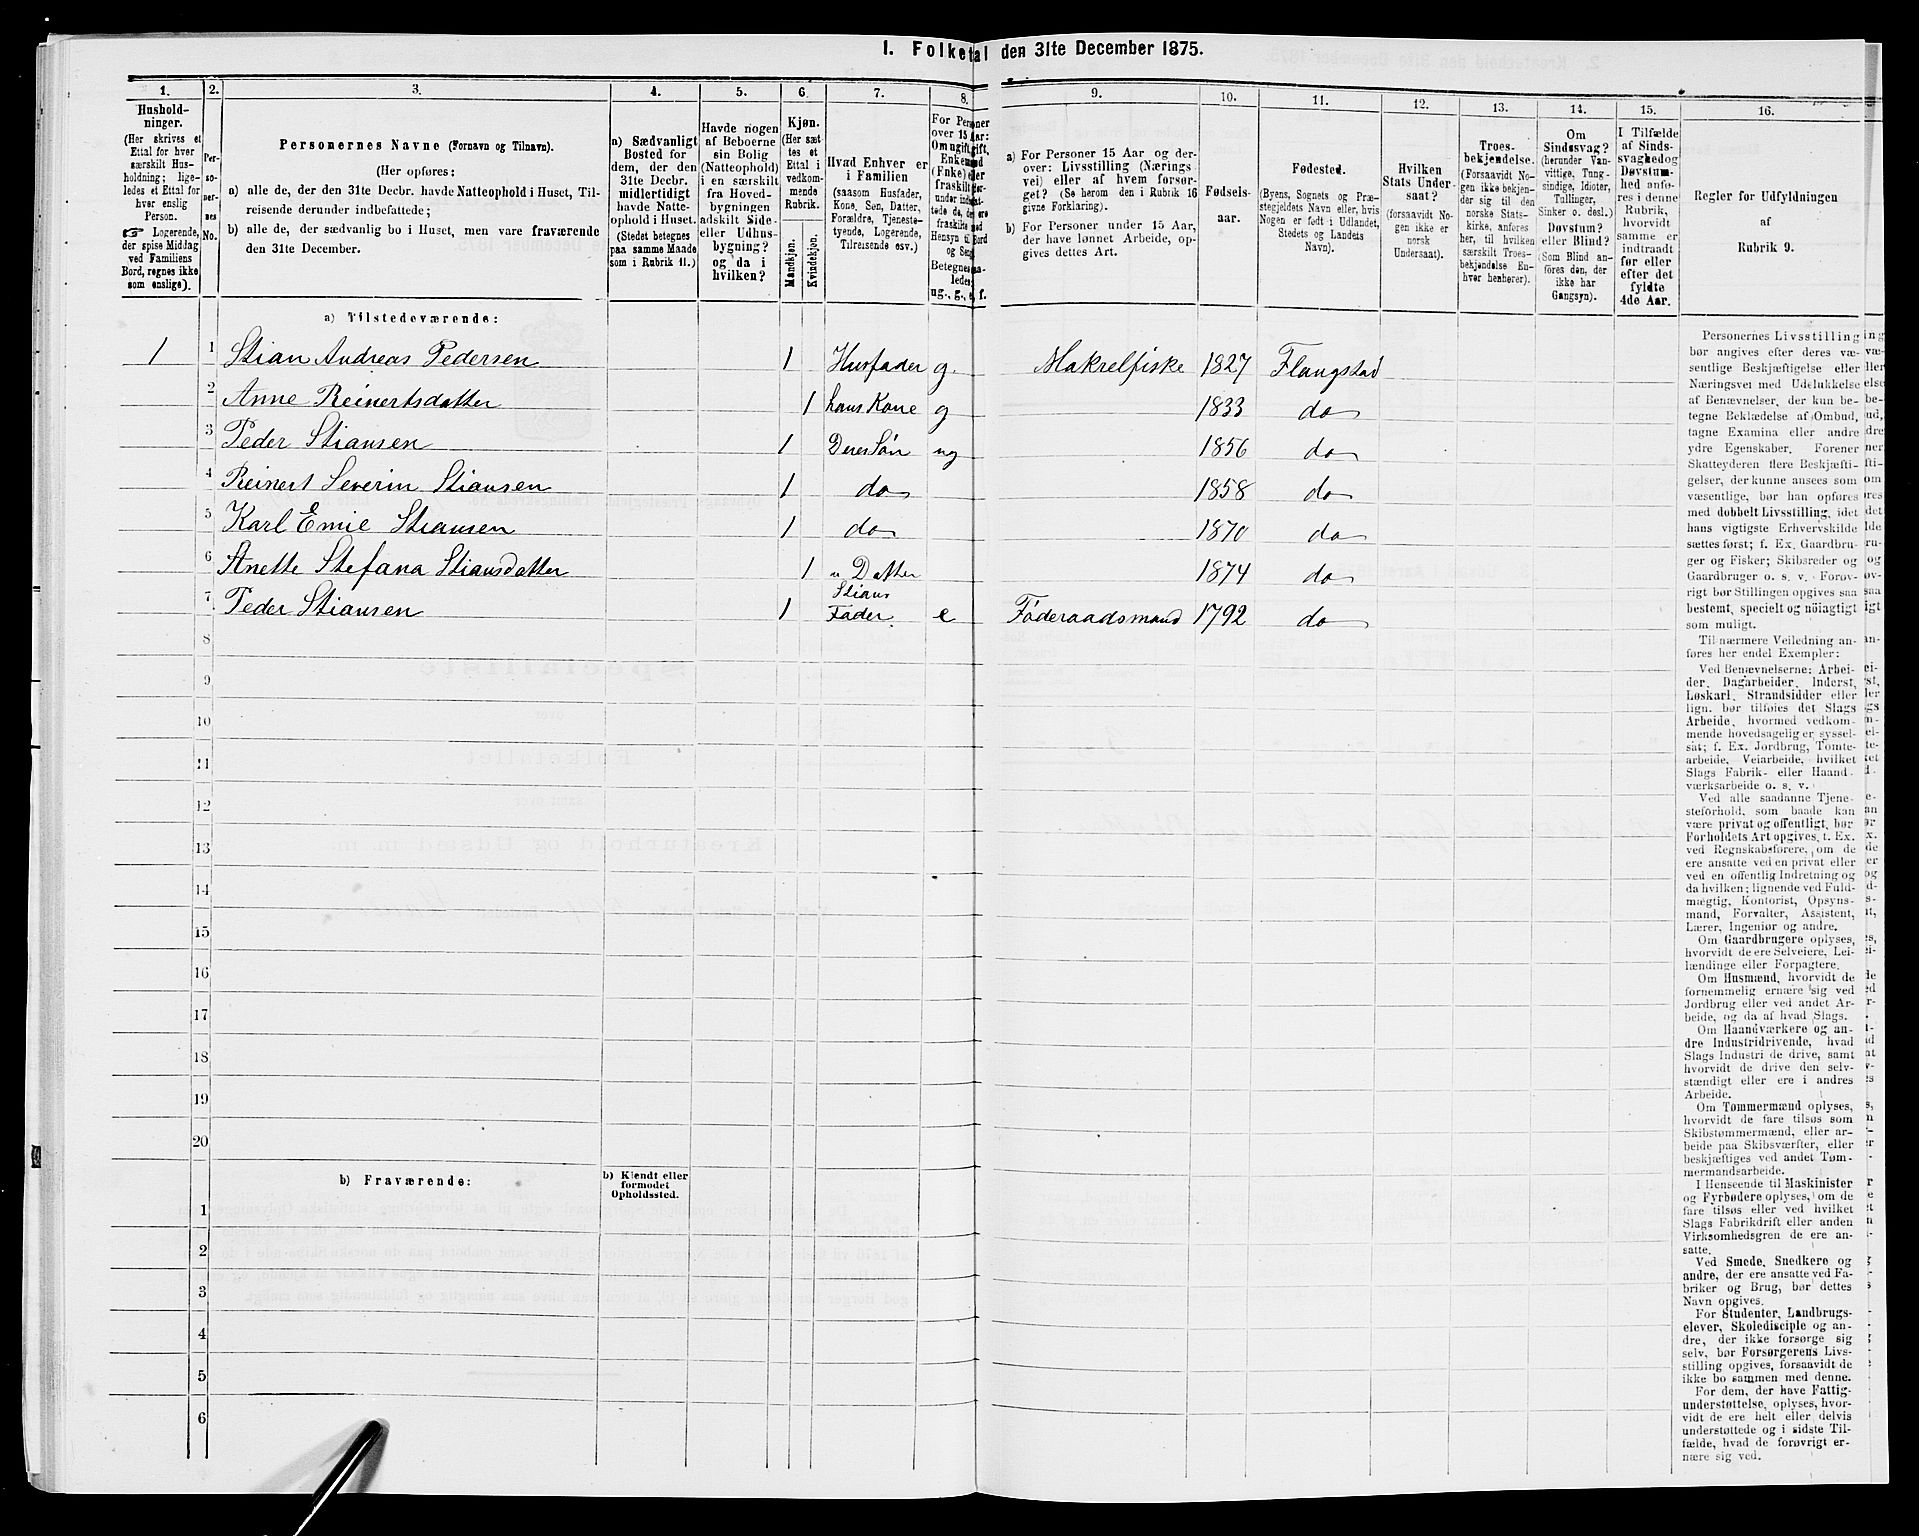 I. Folketal den 31te December 1875.
1. 2. 3. 4. 5. 6. 7. 8. 9. 10. 11. 12. 13. 14. 15. 16.
Hushold-
ninger.
(Her skrives et
Ettal for hver
særskilt Hus-
holdning; lige-
ledes et Ettal for
hver enslig
Person.
☞ Logerende,
der spise Middag
ved Familiens
Bord, regnes ikke
som enslige).
Per-
so-
ner-
nes
No.
Personernes Navne (Fornavn og Tilnavn).
(Her opføres:
a) alle de, der den 31te Decbr. havde Natteophold i Huset, Til-
reisende derunder indbefattede;
b) alle de, der sædvanlig bo i Huset, men vare fraværende
den 31te December.
a) Sædvanligt
Bosted for
dem, der den
31te Decbr.
midlertidigt
havde Natte-
ophold i Huset.
(Stedet betegnes
paa samme Maade
som i Rubrik 11.)
Havde nogen
af Beboerne
sin Bolig
(Natteophold)
i en særskilt
fra Hoved-
bygningen
adskilt Side-
eller Udhus-
bygning?
og da i
hvilken?
Kjøn.
(Her sæt-
tes et
Ettal i
vedkom-
mende
Rubrik.
Mandkjøn.
Kvindekjøn.
Hvad Enhver er
i Familien
(saasom Husfader,
Kone, Søn, Datter,
Forældre, Tjeneste-
tyende, Logerende,
Tilreisende osv.).
For Personer
over 15 Aar:
Om ugift, gift,
Enkemand
(Enke) eller
fraskilt
ug., g., e., f.
a) For Personer 15 Aar og der-
over: Livsstilling (Nærings
vei) eller af hvem forsør-
get? (Se herom den i Rubrik 16
givne Forklaring).
b) For Personer under 15 Aar,
der have lønnet Arbeide, op-
gives dettes Art.
Fødsels-
aar.
Fødested.
(Byens, Sognets og Præ-
stegjeldets Navn eller, hvis
Nogen er født i Udlandet,
Stedets og Landets
Navn).
Hvilken
Stats Under-
saat?
(forsaavidt No-
gen ikke er
norsk
Undersaat).
Troes-
bekjendelse.
(Forsaavidt No-
gen ikke bekjen-
der sig til den
norske Stats-
kirke, anføres
her, til hvilken
særskilt Troes-
bekjendelse En-
hver henhører).
Om
Sindssvag?
(herunder Van-
vittige, Tung-
sindige, Idioter,
Tullinger,
Sinker o. desl.)
Døvstum?
eller Blind?
(Som Blind an-
føres den, der
ikke har
Gangsyn).
I Tilfælde
af Sinds-
svaghed og
Døvstum-
hed anfø-
res i denne
Rubrik,
hvorvidt
samme er
indtraadt
før eller
efter det
fyldte
4de Aar.
Regler for Udfyldningen
af
Rubrik 9.
a) Tilstedeværende:
1 1 Stian Andreas Pedersen 1 Husfader g. Makrelfiske 1827 Flangstad
2 Anne Reinertsdatter 1 hans Kone g 1833 do
3 Peder Stiansen 1 Deres Søn ug 1856 do
4 Reinert Severin Stiansen 1 do 1858 do
5 Karl Emie Stiansen 1 do 1870 do
6 Anette Stefana Stiansdatter 1 " Datter 1874 do
7 Peder Stiansen 1 Stians Fader. e Föderaadsmand 1792 do
8
9
10
11
12
13
14
15
16
17
18
19
20
b) Fraværende:
b) Kjendt eller
formodet
Opholdssted.
1
2
3
4
5
6
Personernes Livsstilling
bør angives efter deres væ-
sentlige Beskjæftigelse eller
Næringsvei med Udelukkelse
af Benævnelser, der kun be-
tegne Beklædelse af Ombud,
tagne Examina eller andre
ydre Egenskaber. Forener
Skatteyderen flere Beskjæfti-
gelser, der kunne ansees som
væsentlige, bør han opføres
med dobbelt Livsstilling, idet
hans vigtigste Erhvervskilde
sættes først; f. Ex. Gaardbru-
ger og Fisker; Skibsreder og
Gaardbruger o. s. v. Forøv-
rigt bør Stillingen opgives saa
bestemt, specielt og nöiagtigt
som muligt.
Til nærmere Veiledning an-
føres her endel Exempler:
Ved Benævnelserne: Arbei-
der, Dagarbeider, Inderst,
Løskarl, Strandsidder eller
lign. bør tilføies det Slags
Arbeide, hvormed vedkom-
mende hovedsagelig er syssel-
sat; f. Ex. Jordbrug, Tomte-
arbeide, Veiarbeide, hvilket
Slags Fabrik- eller Haand-
værksarbeide o. s. v.
Ved alle saadanne Tjene-
steforhold, som baade kan
være privat og offentligt, bør
Forholdets Art opgives, t. Ex.
ved Regnskabsførere, om de
ere ansatte ved en privat eller
ved en offentlig Indretning og
da hvilken; lignende ved Fuld-
mægtig, Kontorist, Opsyns-
mand, Forvalter, Assistent,
Lærer, Ingeniør og andre.
Om Gaardbrugere oplyses,
hvorvidt de ere Selveiere, Lei-
lændinge eller Forpagtere.
Om Husmænd, hvorvidt de
fornemmelig ernære sig ved
Jordbrug eller ved andet Ar-
beide, og da af hvad Slags.
Om Haandværkere og an-
dre Industridrivende, hvad
Slags Industri de drive, samt
hvorvidt de drive den selv-
stændigt eller ere i andres
Arbeide.
Om Tømmermænd oplyses,
hvorvidt de fare tilsøs som
Skibstømmermænd, eller ar-
beide paa Skibsværfter, eller
beskjæftiges ved andet Tøm-
mermandsarbeide.
I Henseende til Maskinister
og Fyrbødere oplyses, om de
fare tilsøs eller ved hvilket
Slags Fabrikdrift eller anden
Virksomhedsgren de ere an-
satte.
Ved Smede, Snedkere og
andre, der ere ansatte ved Fa-
briker og Brug, bør dettes
Navn opgives.
For Studenter, Landbrugs-
elever, Skoledisciple og an-
dre, der ikke forsørge sig
selv, bør Forsørgerens Livs-
stilling opgives, forsaavidt de
ikke bo sammen med denne.
For dem, der have Fattig-
understøttelse, oplyses, hvor-
vidt de ere helt eller delvis
understøttede og i sidste Til-
fælde, hvad de forøvrigt er-
nære sig ved.